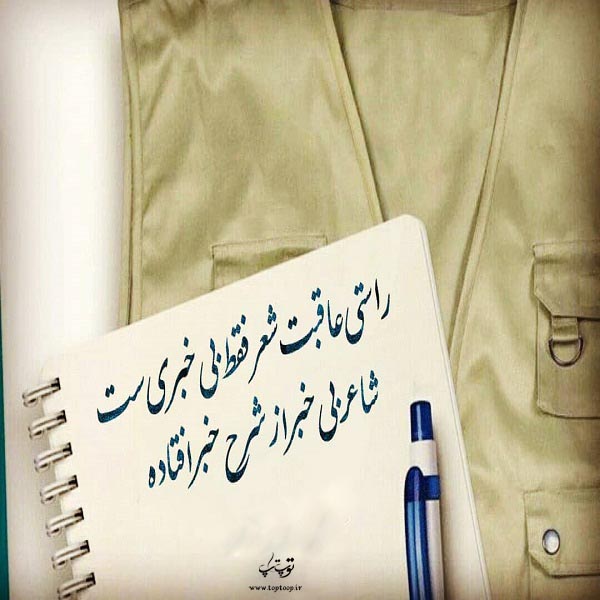 راستی عاقبت شعر فقط بی خبری ست
شاعر بی خبر از شرح خبر افتاده
توپ تاپ
www.toptoop.ir